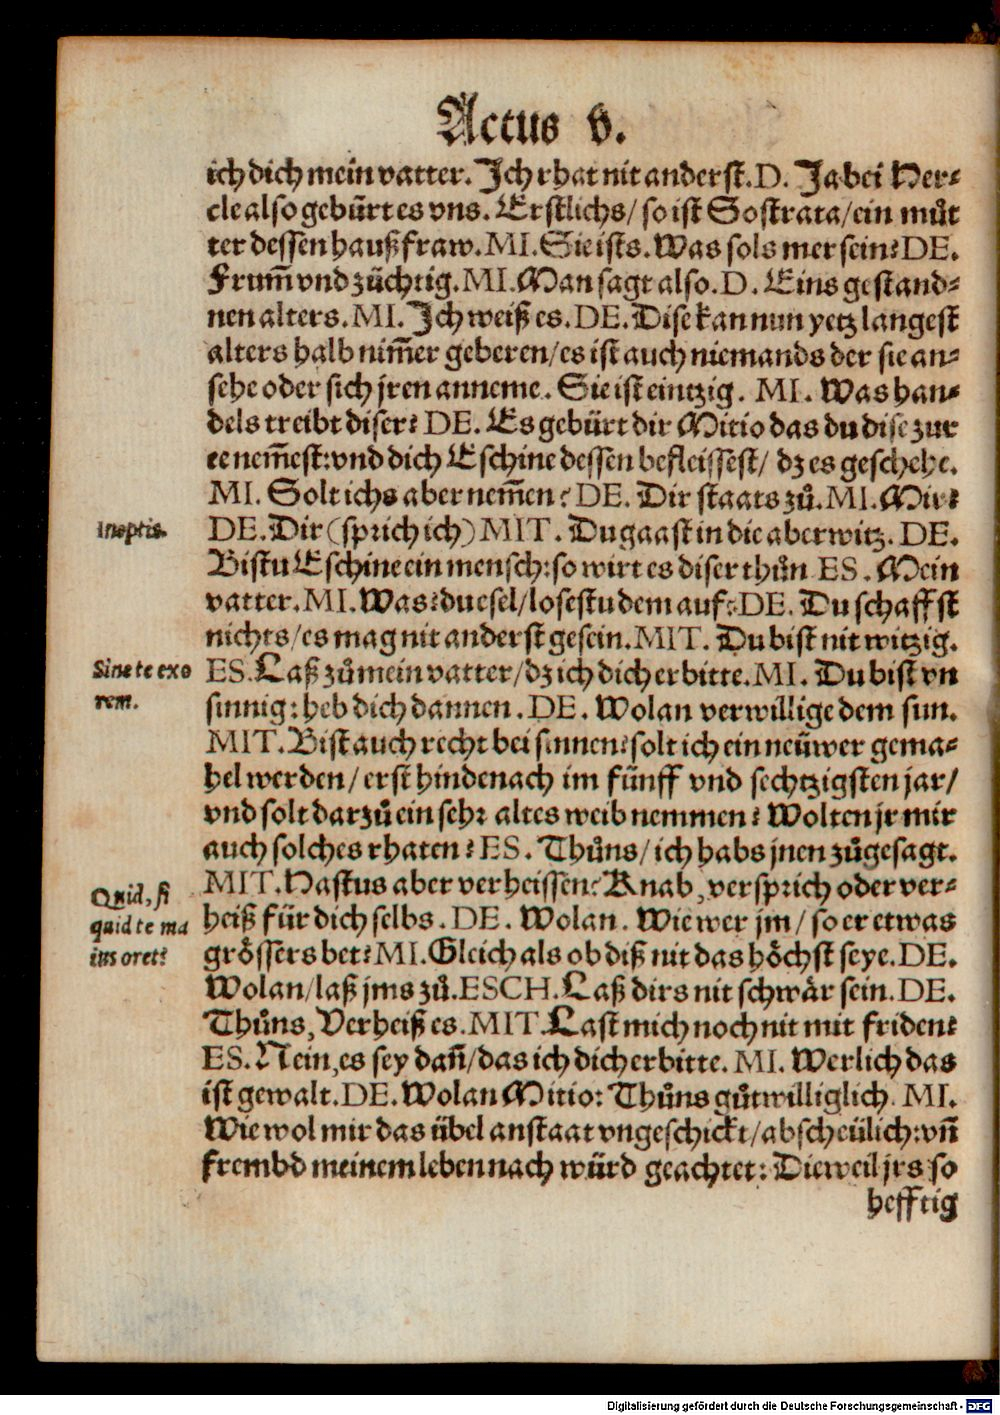 Actus v.
ich dich mein vatter. Ich rhat nit anderst. D. Ja bei Her-
cle also gebürt es vns. Erstlichs/ so ist Sostrata/ ein můt
ter dessen haußfraw. MI. Sie ists. Was sols mer sein? DE.
Frum̃ vnd züchtig. MI. Man sagt also. D. Eins gestand-
nen alters. MI. Ich weiß es. DE. Dise kan nun yetz langest
alters halb nim̃er geberen/ es ist auch niemands der sie an-
sehe oder sich jren anneme. Sie ist eintzig. MI. Was han-
dels treibt diser? DE. Es gebürt dir Mitio das du dise zur
ee nem̃est: vnd dich Eschine dessen befleissest/ dz es geschehe.
MI. Solt ichs aber nem̃en? DE. Dir staats zů. MI. Mir?
Ineptis.
DE. Dir (sprich ich) MIT. Du gaast in die aberwitz. DE.
Bistu Eschine ein mensch: so wirt es diser thůn ES. Mein
vatter. MI. Was? du esel/ losestu dem auf? DE. Du schaffst
nichts/ es mag nit anderst gesein. MIT. Du bist nit witzig.
Sine te exo
rem.
ES. Laß zů mein vatter/ dz ich dich erbitte. MI. Du bist vn
sinnig: heb dich dannen. DE. Wolan verwillige dem sun.
MIT. Bist auch recht bei sinnen? solt ich ein neüwer gema-
hel werden/ erst hindenach im fünff vnd sechtzigsten jar/
vnd solt darzů ein sehr altes weib nemmen? Wolten jr mir
auch solches rhaten? ES. Thůns/ ich habs jnen zůgesagt.
Quid, si
quid te ma
ius oret?
MIT. Hastus aber verheissen? Knab, versprich oder ver-
heiß für dich selbs. DE. Wolan. Wie wer jm/ so er etwas
grössers bet? MI. Gleich als ob diß nit das höchst seye. DE.
Wolan/ laß jms zů. ESCH. Laß dirs nit schwår sein. DE.
Thůns, Verheiß es. MIT. Last mich noch nit mit friden?
ES. Nein, es sey dañ/ das ich dich erbitte. MI. Werlich das
ist gewalt. DE. Wolan Mitio: Thůns gůtwilliglich. MI.
Wie wol mir das übel anstaat vngeschickt/ abscheülich: vñ
frembd meinem leben nach würd geachtet: Dieweil jrs so
hefftig
Digitalisierung gefördert durch die Deutsche Forschungsgemeinschaft - DFG